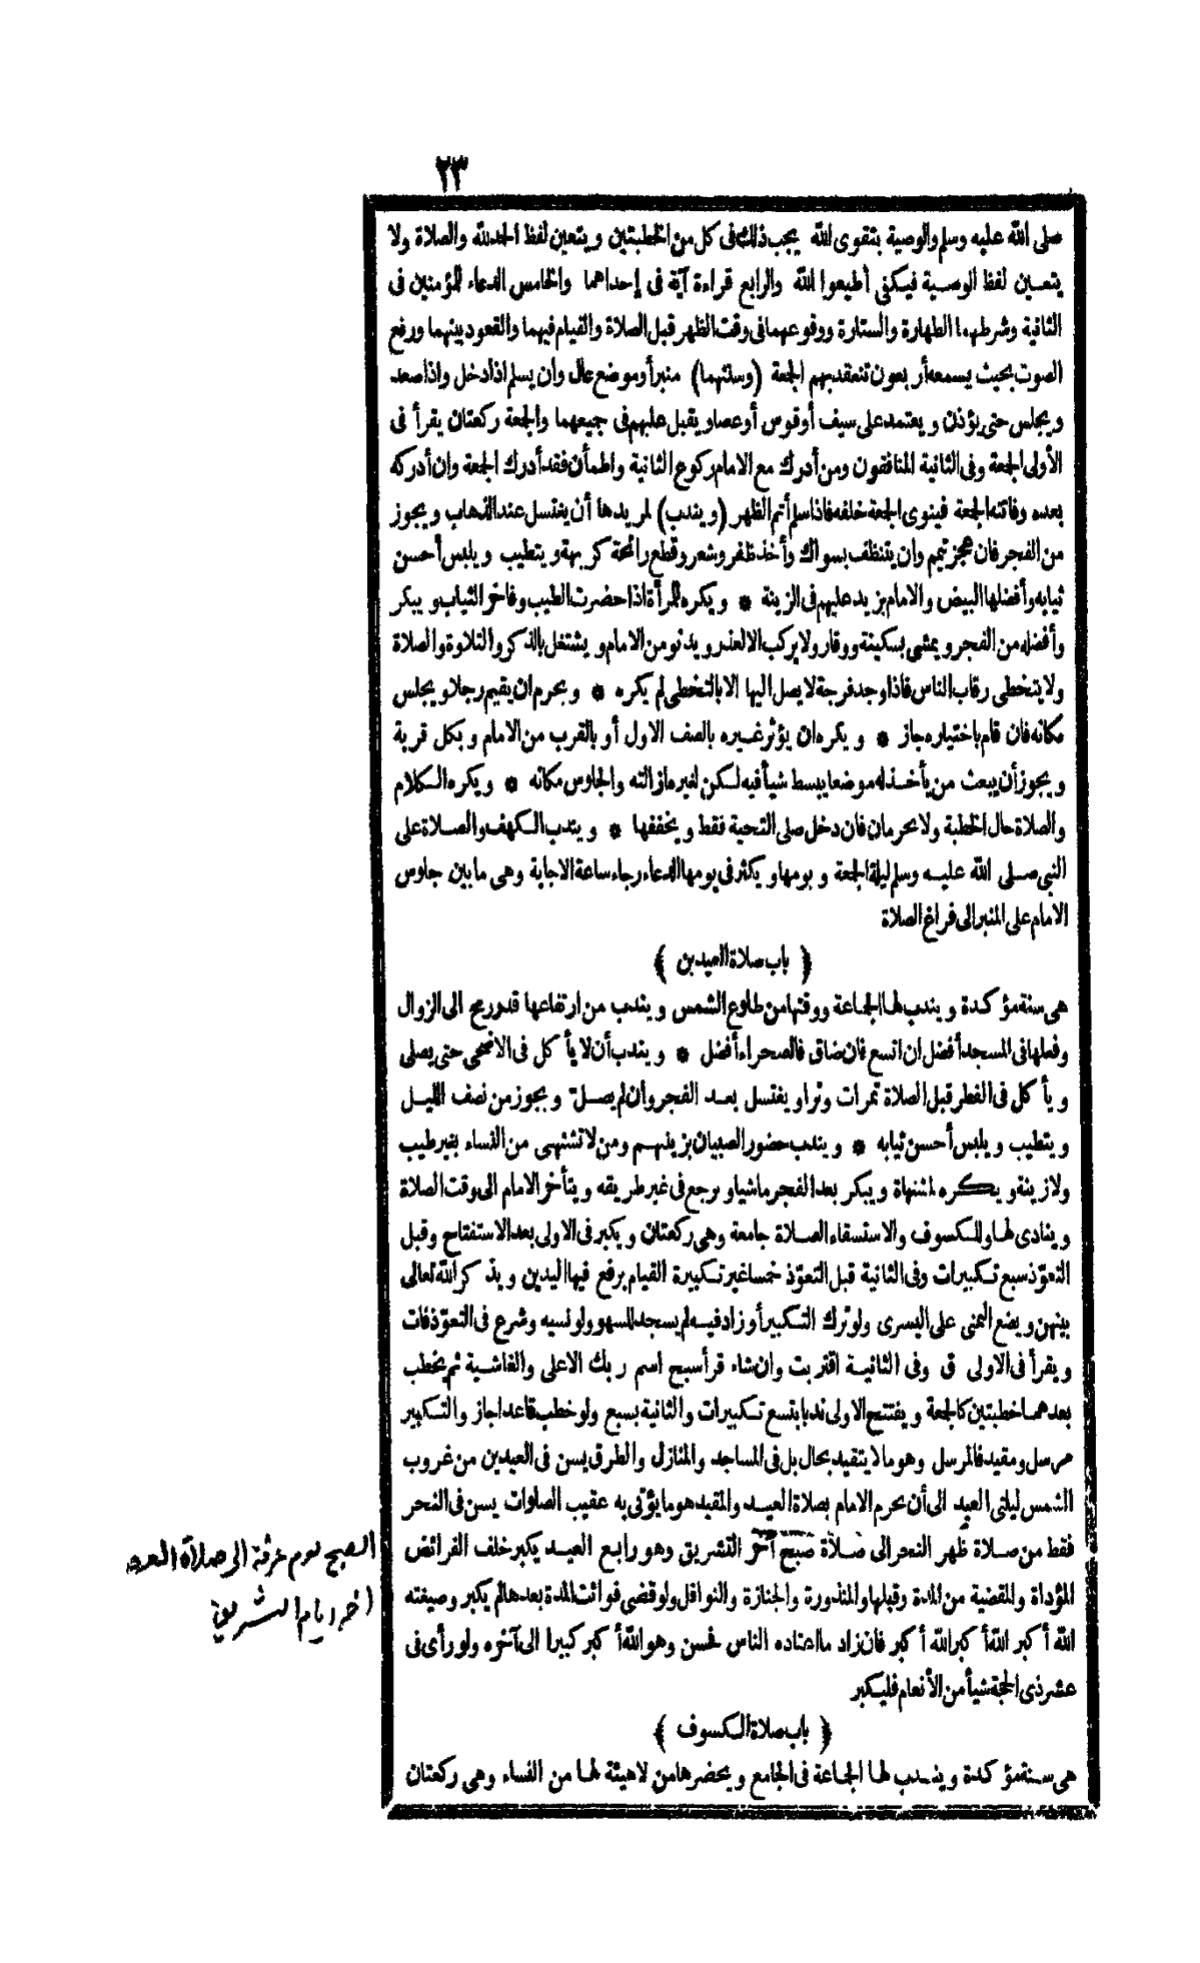 ٢٣
صلى الله عليه وسلم والوصية بتقوى الله يجب ذلك فى كل من الخطبتين ويتعين لفظ الحمدلله والصلاة ولا
يتعين لفظ الوصية فيكفى أطيعوا الله والرابع قراءة آية فى إحداهما والخامس الدعاء للمؤمنين فى
الثانية وشرطهما الطهارة والستارة ووقوعهما فى وقت الظهر قبل الصلاة والقيام فيهما والقعود بينهما ورفع
الصوت بحيث يسمعه أربعون تنعقد بهم الجمعة (وسنتهما) منبر أو موضع عال وان يسلم اذا دخل واذا صعد
ويجلس حتى يؤذن ويعتمد على سيف أو قوس أو عصا ويقبل عليهم فى جميعهما والجمعة ركعتان يقرأ فى
الأولى الجمعة وفى الثانية المنافقون ومن أدرك مع الامام ركوع الثانية واطمأن فقد أدرك الجمعة وان أدركه
بعده وفاتته الجمعة فينوى الجمعة خلفه فاذا سلم أتم الظهر (ويندب) لمريدها أن يغتسل عند الذهاب ويجوز
من الفجر فان عجز تيمم وان يتنظف بسواك وأخذ ظفر وشعر وقطع رائحة كريهة ويتطيب ويلبس أحسن
ثيابه وأفضلها البيض والامام يزيد عليهم فى الزينة * ويكره للمرأة اذا حضرت الطيب وفاخر الثياب ويبكر
وأفضله من الفجر ويمشى بسكينة ووقار ولا يركب الا لعذر ويدنو من الامام ويشتغل بالذكر والتلاوة والصلاة
ولا يتخطى رقاب الناس فاذا وجد فرجة لا يصل اليها الا بالتخطى لم يكره * ويحرم ان يقيم رجلا ويجلس
مكانه فان قام باختياره جاز * ويكره ان يؤثر غيره بالصف الاول أو بالقرب من الامام وبكل قربة
ويجوز أن يبعث من يأخذ له موضعا يبسط شيأ فيه لكن لغيره ازالته والجلوس مكانه * ويكره الكلام
والصلاة حال الخطبة ولا يحرمان فان دخل صلى التحية فقط ويخففها * ويندب الكهف والصلاة على
النبى صلى الله عليه وسلم ليلة الجمعة ويومها ويكثر فى يومها الدعاء رجاء ساعة الاجابة وهى ما بين جلوس
الامام على المنبر الى فراغ الصلاة
﴿ باب صلاة العيدين ﴾
هى سنة مؤكدة ويندب لها الجماعة ووقتها من طلوع الشمس ويندب من ارتفاعها قدر رمح الى الزوال
وفعلها فى المسجد أفضل ان اتسع فان ضاق فالصحراء أفضل * ويندب أن لا يأكل فى الاضحى حتى يصلى
ويأكل فى الفطر قبل الصلاة تمرات وترا ويغتسل بعد الفجر وان لم يصل ويجوز من نصف الليل
ويتطيب ويلبس أحسن ثيابه * ويندب حضور الصبيان بزينهم ومن لا تشتهى من النساء بغير طيب
ولا زينة ويكره لمشتهاة ويبكر بعد الفجر ماشيا ويرجع فى غير طريقه ويتأخر الامام الى وقت الصلاة
وينادى لها وللكسوف والاستسقاء الصلاة جامعة وهى ركعتان ويكبر فى الاولى بعد الاستفتاح وقبل
التعوّذ سبع تكبيرات وفى الثانية قبل التعوّذ خمسا غير تكبيرة القيام يرفع فيها اليدين ويذكر الله تعالى
بينهن ويضع اليمنى على اليسرى ولو ترك التكبير أو زاد فيه لم يسجد للسهو ولو نسيه وشرع فى التعوّذ فات
ويقرأ فى الاولى ق وفى الثانية اقتربت وان شاء قرأ سبح اسم ربك الاعلى والغاشية ثم يخطب
بعدهما خطبتين كالجمعة ويفتتح الاولى ندبا بتسع تكبيرات والثانية بسبع ولو خطب قاعدا جاز والتكبير
مرسل ومقيد فالمرسل وهو ما لا يتقيد بحال بل فى المساجد والمنازل والطرق يسن فى العيدين من غروب
الشمس ليلتى العيد الى أن يحرم الامام بصلاة العيد والمقيد هو ما يؤتى به عقيب الصلوات يسن فى النحر
فقط من صلاة ظهر النحر الى صلاة صبح آخر التشريق وهو رابع العيد يكبر خلف الفرائض
المؤداة والمقضية من المدة وقبلها والمنذورة والجنازة والنوافل ولو قضى فوائت المدة بعدها لم يكبر وصيغته
الله أكبر الله أكبر الله أكبر فان زاد ما اعتاده الناس فحسن وهو الله أكبر كبيرا الى آخره ولو رأى فى
عشر ذى الحجة شيأ من الأنعام فليكبر
﴿ باب صلاة الكسوف ﴾
هى سنة مؤكدة ويندب لها الجماعة فى الجامع ويحضرها من لا هيئة لها من النساء وهى ركعتان
الصبح يوم عرفة الى صلاة العصر
اخر ايام التشريق